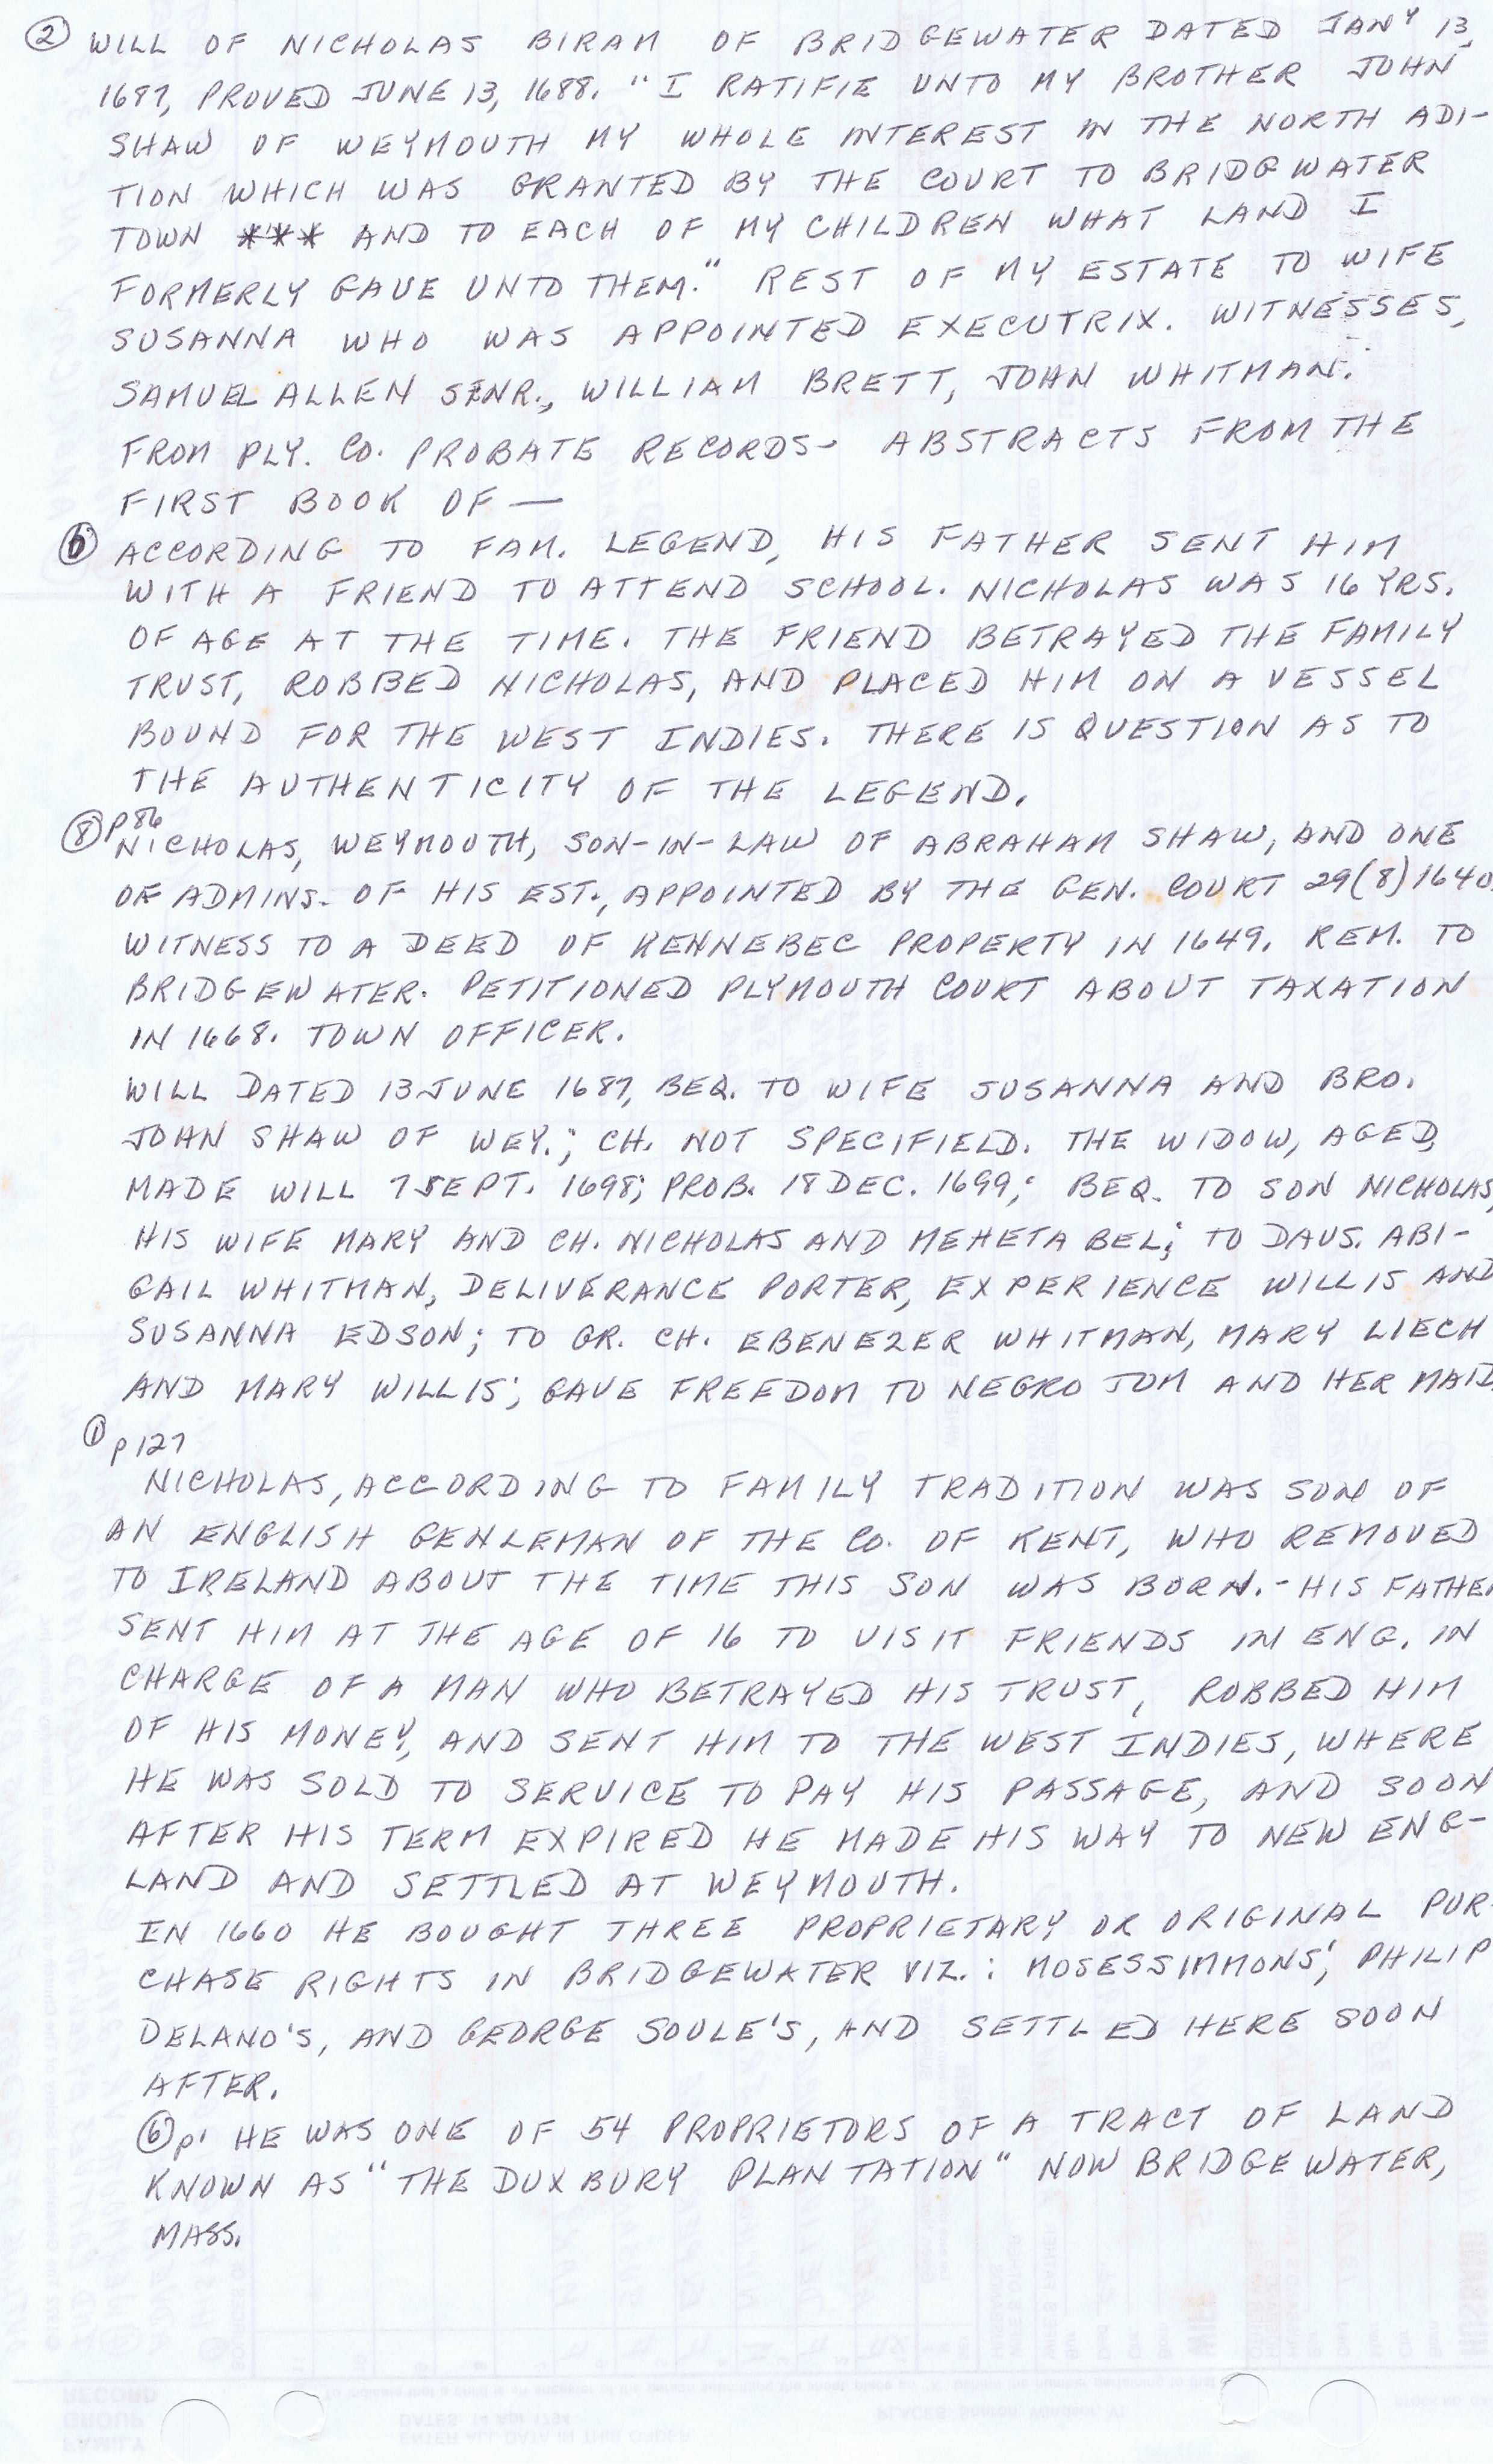 ② WILL OF NICHOLAS BIRAM OF BRIDGEWATER DATED JANY 13,
1687, PROVED JUNE 13, 1688. "I RATIFIE UNTO MY BROTHER JOHN
SHAW OF WEYMOUTH MY WHOLE INTEREST IN THE NORTH ADI-
TION WHICH WAS GRANTED BY THE COURT TO BRIDGWATER
TOWN *** AND TO EACH OF MY CHILDREN WHAT LAND I
FORMERLY GAVE UNTO THEM." REST OF MY ESTATE TO WIFE
SUSANNA WHO WAS APPOINTED EXECUTRIX. WITNESSES,
SAMUEL ALLEN SENR., WILLIAM BRETT, JOHN WHITMAN.
FROM PLY. CO. PROBATE RECORDS- ABSTRACTS FROM THE
FIRST BOOK OF —
⑥ ACCORDING TO FAM. LEGEND, HIS FATHER SENT HIM
WITH A FRIEND TO ATTEND SCHOOL. NICHOLAS WAS 16 YRS.
OF AGE AT THE TIME. THE FRIEND BETRAYED THE FAMILY
TRUST, ROBBED NICHOLAS, AND PLACED HIM ON A VESSEL
BOUND FOR THE WEST INDIES. THERE IS QUESTION AS TO
THE AUTHENTICITY OF THE LEGEND.
⑧ p86
NICHOLAS, WEYMOUTH, SON-IN-LAW OF ABRAHAM SHAW, AND ONE
OF ADMINS. OF HIS EST., APPOINTED BY THE GEN. COURT 29(8)1640.
WITNESS TO A DEED OF KENNEBEC PROPERTY IN 1649. REM. TO
BRIDGEWATER. PETITIONED PLYMOUTH COURT ABOUT TAXATION
IN 1668. TOWN OFFICER.
WILL DATED 13 JUNE 1687, BEQ. TO WIFE SUSANNA AND BRO.
JOHN SHAW OF WEY.; CH. NOT SPECIFIELD. THE WIDOW, AGED,
MADE WILL 7 SEPT. 1698; PROB. 18 DEC. 1699; BEQ. TO SON NICHOLAS,
HIS WIFE MARY AND CH. NICHOLAS AND MEHETABEL; TO DAUS. ABI-
GAIL WHITMAN, DELIVERANCE PORTER, EXPERIENCE WILLIS AND
SUSANNA EDSON; TO GR. CH. EBENEZER WHITMAN, MARY LIECH
AND MARY WILLIS; GAVE FREEDOM TO NEGRO TOM AND HER MAID.
① p127
NICHOLAS, ACCORDING TO FAMILY TRADITION WAS SON OF
AN ENGLISH GENLEMAN OF THE CO. OF KENT, WHO REMOVED
TO IRELAND ABOUT THE TIME THIS SON WAS BORN.- HIS FATHER
SENT HIM AT THE AGE OF 16 TO VISIT FRIENDS IN ENG. IN
CHARGE OF A MAN WHO BETRAYED HIS TRUST, ROBBED HIM
OF HIS MONEY, AND SENT HIM TO THE WEST INDIES, WHERE
HE WAS SOLD TO SERVICE TO PAY HIS PASSAGE, AND SOON
AFTER HIS TERM EXPIRED HE MADE HIS WAY TO NEW ENG-
LAND AND SETTLED AT WEYMOUTH.
IN 1660 HE BOUGHT THREE PROPRIETARY OR ORIGINAL PUR-
CHASE RIGHTS IN BRIDGEWATER VIZ.: MOSES SIMMONS', PHILIP
DELANO'S, AND GEORGE SOULE'S, AND SETTLED HERE SOON
AFTER.
⑥ p1 HE WAS ONE OF 54 PROPRIETORS OF A TRACT OF LAND
KNOWN AS "THE DUXBURY PLANTATION" NOW BRIDGEWATER,
MASS.